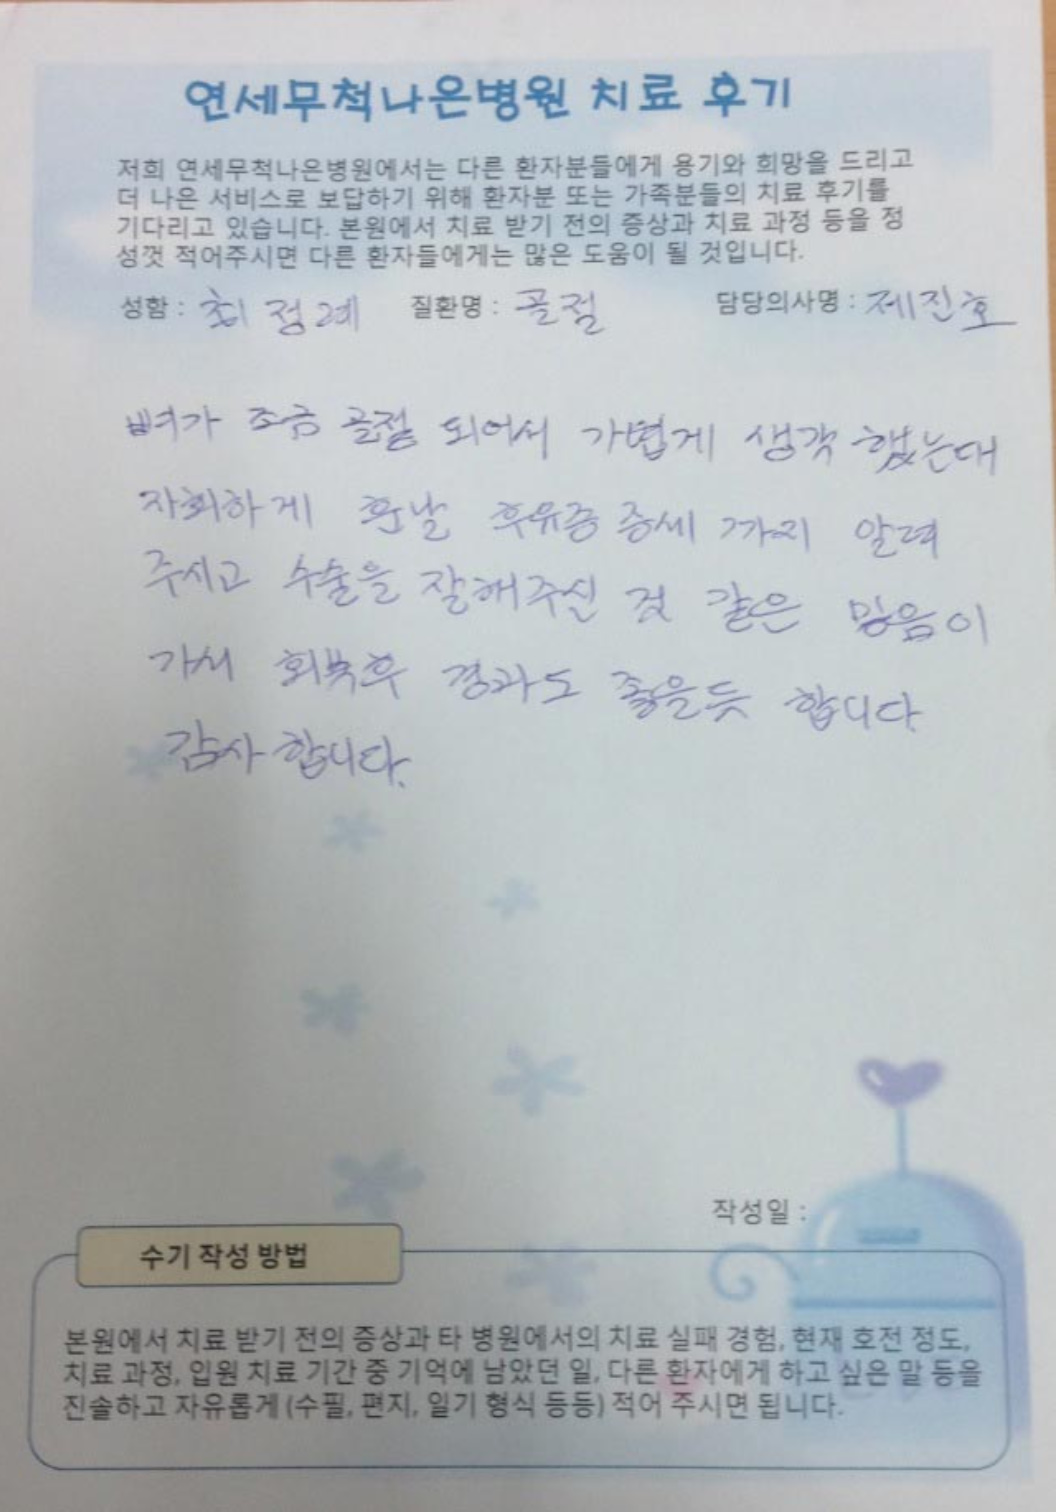 연세무척나은병원 치료 후기
저희 연세무척나은병원에서는 다른 환자분들에게 용기와 희망을 드리고
더 나은 서비스로 보답하기 위해 환자분 또는 가족분들의 치료 후기를
기다리고 있습니다. 본원에서 치료 받기 전의 증상과 치료 과정 등을 정
성껏 적어주시면 다른 환자들에게는 많은 도움이 될 것입니다.
성함 : 최정례 질환명 : 골절 담당의사명 : 제진호
뼈가 조금 골절 되어서 가볍게 생각 했는대
자회하게 훗날 후유증 증세 까지 알려
주시고 수술을 잘해주신 것 같은 믿음이
가서 회복후 경과도 좋을듯 합니다
감사합니다.
작성일 :
수기 작성 방법
본원에서 치료 받기 전의 증상과 타 병원에서의 치료 실패 경험, 현재 호전 정도,
치료 과정, 입원 치료 기간 중 기억에 남았던 일, 다른 환자에게 하고 싶은 말 등을
진솔하고 자유롭게 (수필, 편지, 일기 형식 등등) 적어 주시면 됩니다.